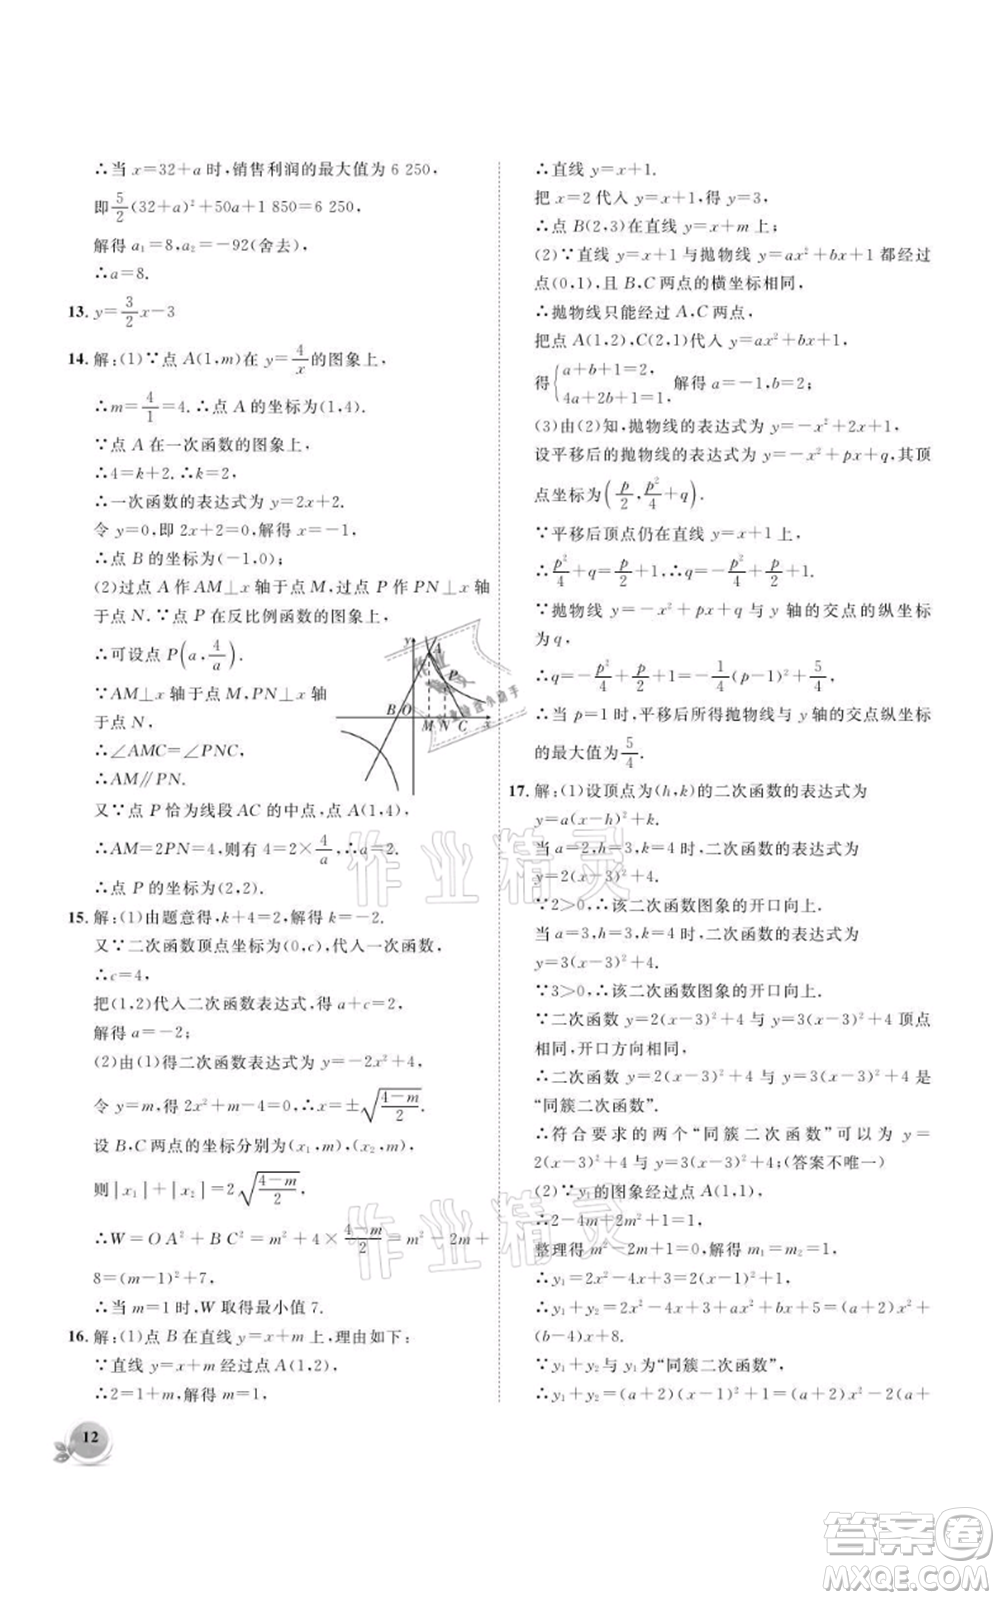 ∴当 x=32+a 时,销售利润的最大值为 6 250,
即 5/2(32+a)²+50a+1 850=6 250,
解得 a₁=8,a₂=-92(舍去).
∴a=8.
13. y=3/2x-3
14. 解:(1)∵点 A(1,m)在 y=4/x 的图象上,
∴m=4/1=4.∴点 A 的坐标为(1,4).
∵点 A 在一次函数的图象上,
∴4=k+2.∴k=2,
∴一次函数的表达式为 y=2x+2.
令 y=0,即 2x+2=0,解得 x=-1,
∴点 B 的坐标为(-1,0);
(2)过点 A 作 AM⊥x 轴于点 M,过点 P 作 PN⊥x 轴
于点 N.∵点 P 在反比例函数的图象上,
∴可设点 P(a,4/a).
∵AM⊥x 轴于点 M,PN⊥x 轴
于点 N,
∴∠AMC=∠PNC,
∴AM∥PN.
y A P B O M N C x
又∵点 P 恰为线段 AC 的中点,A(1,4),
∴AM=2PN=4,则有 4=2×4/a,∴a=2.
∴点 P 的坐标为(2,2).
15. 解:(1)由题意得,k+4=2,解得 k=-2.
又∵二次函数顶点坐标为(0,c),代入一次函数,
∴c=4,
把(1,2)代入二次函数表达式,得 a+c=2,
解得 a=-2;
(2)由(1)得二次函数表达式为 y=-2x²+4,
令 y=m,得 2x²+m-4=0,∴x=±√((4-m)/2).
设 B,C 两点的坐标分别为(x₁,m),(x₂,m),
则|x₁|+|x₂|=2√((4-m)/2),
∴W=OA²+BC²=m²+4×(4-m)/2=m²-2m+
8=(m-1)²+7,
∴当 m=1 时,W 取得最小值 7.
16. 解:(1)点 B 在直线 y=x+m 上,理由如下:
∵直线 y=x+m 经过点 A(1,2),
∴2=1+m,解得 m=1,
12
∴直线 y=x+1.
把 x=2 代入 y=x+1,得 y=3,
∴点 B(2,3)在直线 y=x+m 上;
(2)∵直线 y=x+1 与抛物线 y=ax²+bx+1 都经过
点(0,1),且 B,C 两点的横坐标相同,
∴抛物线只能经过 A,C 两点,
把点 A(1,2),C(2,1)代入 y=ax²+bx+1,
得{a+b+1=2, 4a+2b+1=1. 解得 a=-1,b=2;
(3)由(2)知,抛物线的表达式为 y=-x²+2x+1,
设平移后的抛物线的表达式为 y=-x²+px+q,其顶
点坐标为(p/2,p²/4+q).
∵平移后顶点仍在直线 y=x+1 上,
∴p²/4+q=p/2+1,
∵抛物线 y=-x²+px+q 与 y 轴的交点的纵坐标
为 q,
∴q=-p²/4+p/2+1=-1/4(p-1)²+5/4,
∴当 p=1 时,平移后所得抛物线与 y 轴的交点纵坐标
的最大值为5/4.
17. 解:(1)设顶点为(h,k)的二次函数的表达式为
y=a(x-h)²+k.
当 a=2,h=3,k=4 时,二次函数的表达式为
y=2(x-3)²+4.
∵2>0,∴该二次函数图象的开口向上.
当 a=3,h=3,k=4 时,二次函数的表达式为
y=3(x-3)²+4.
∵3>0,∴该二次函数图象的开口向上.
∵二次函数 y=2(x-3)²+4 与 y=3(x-3)²+4 顶点
相同,开口方向相同,
∴二次函数 y=2(x-3)²+4 与 y=3(x-3)²+4 是
“同簇二次函数”.
∴符合要求的两个“同簇二次函数”可以为 y=
2(x-3)²+4 与 y=3(x-3)²+4;(答案不唯一)
(2)∵y₁的图象经过点 A(1,1),
∴2-4m+2m²+1=1,
整理得 m²-2m+1=0,解得 m₁=m₂=1,
∴y₁=2x²-4x+3=2(x-1)²+1,
∴y₁+y₂=2x²-4x+3+ax²+bx+5=(a+2)x²+
(b-4)x+8.
∵y₁+y₂ 与 y₁为“同簇二次函数”,
∴y₁+y₂=(a+2)(x-1)²+1=(a+2)x²-2(a+
作业精灵
作业精灵
答案圈
MXQE.COM